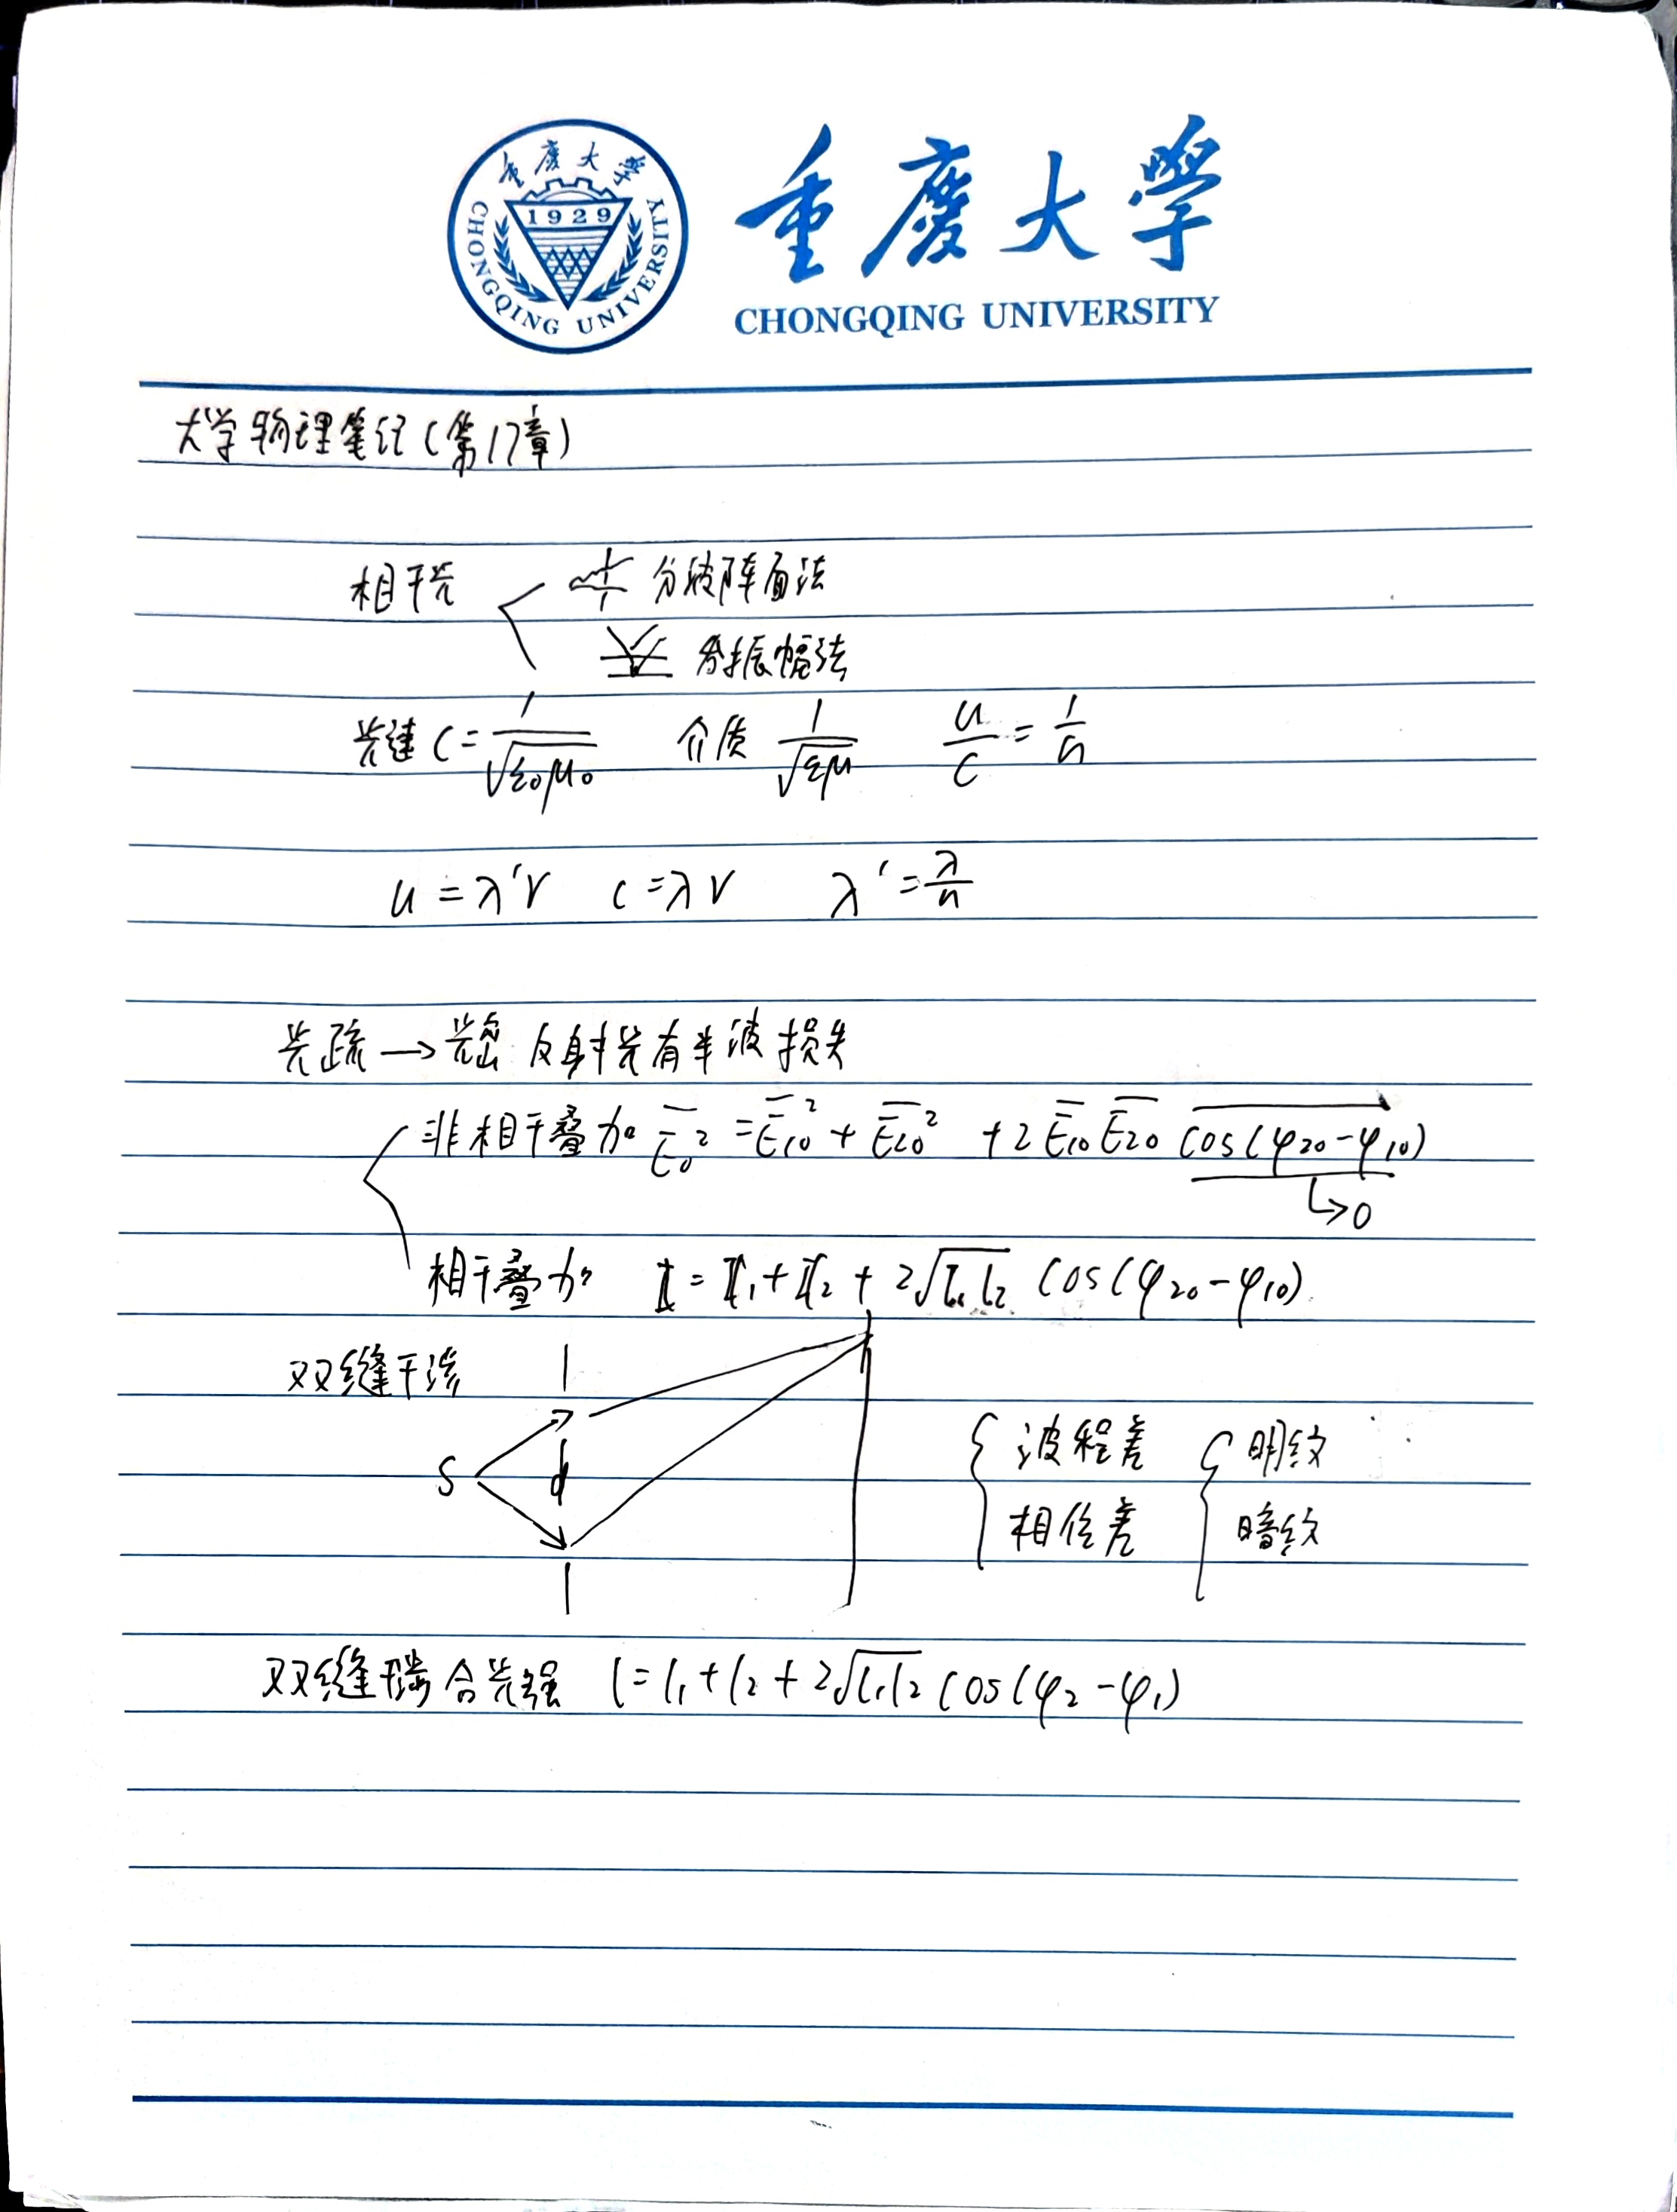 重慶大學
1929
CHONGQING UNIVERSITY
重慶大學
CHONGQING UNIVERSITY
大学物理笔记(第17章)
相干光 分波阵面法
分振幅法
光速 C=1/√ε₀μ₀ 介质 1/√εμ u/c=1/n
u=λ'ν c=λν λ'=λ/n
光疏→光密 反射光有半波损失
非相干叠加 E̅₀²=E̅₁₀²+E̅₂₀²+2E̅₁₀E̅₂₀cos(φ₂₀-φ₁₀)
↳0
相干叠加 I=I₁+I₂+2√I₁I₂ cos(φ₂₀-φ₁₀)
双缝干涉
S d
{波程差 {明纹
相位差 暗纹
双缝干涉合光强 I=I₁+I₂+2√I₁I₂ cos(φ₂-φ₁)